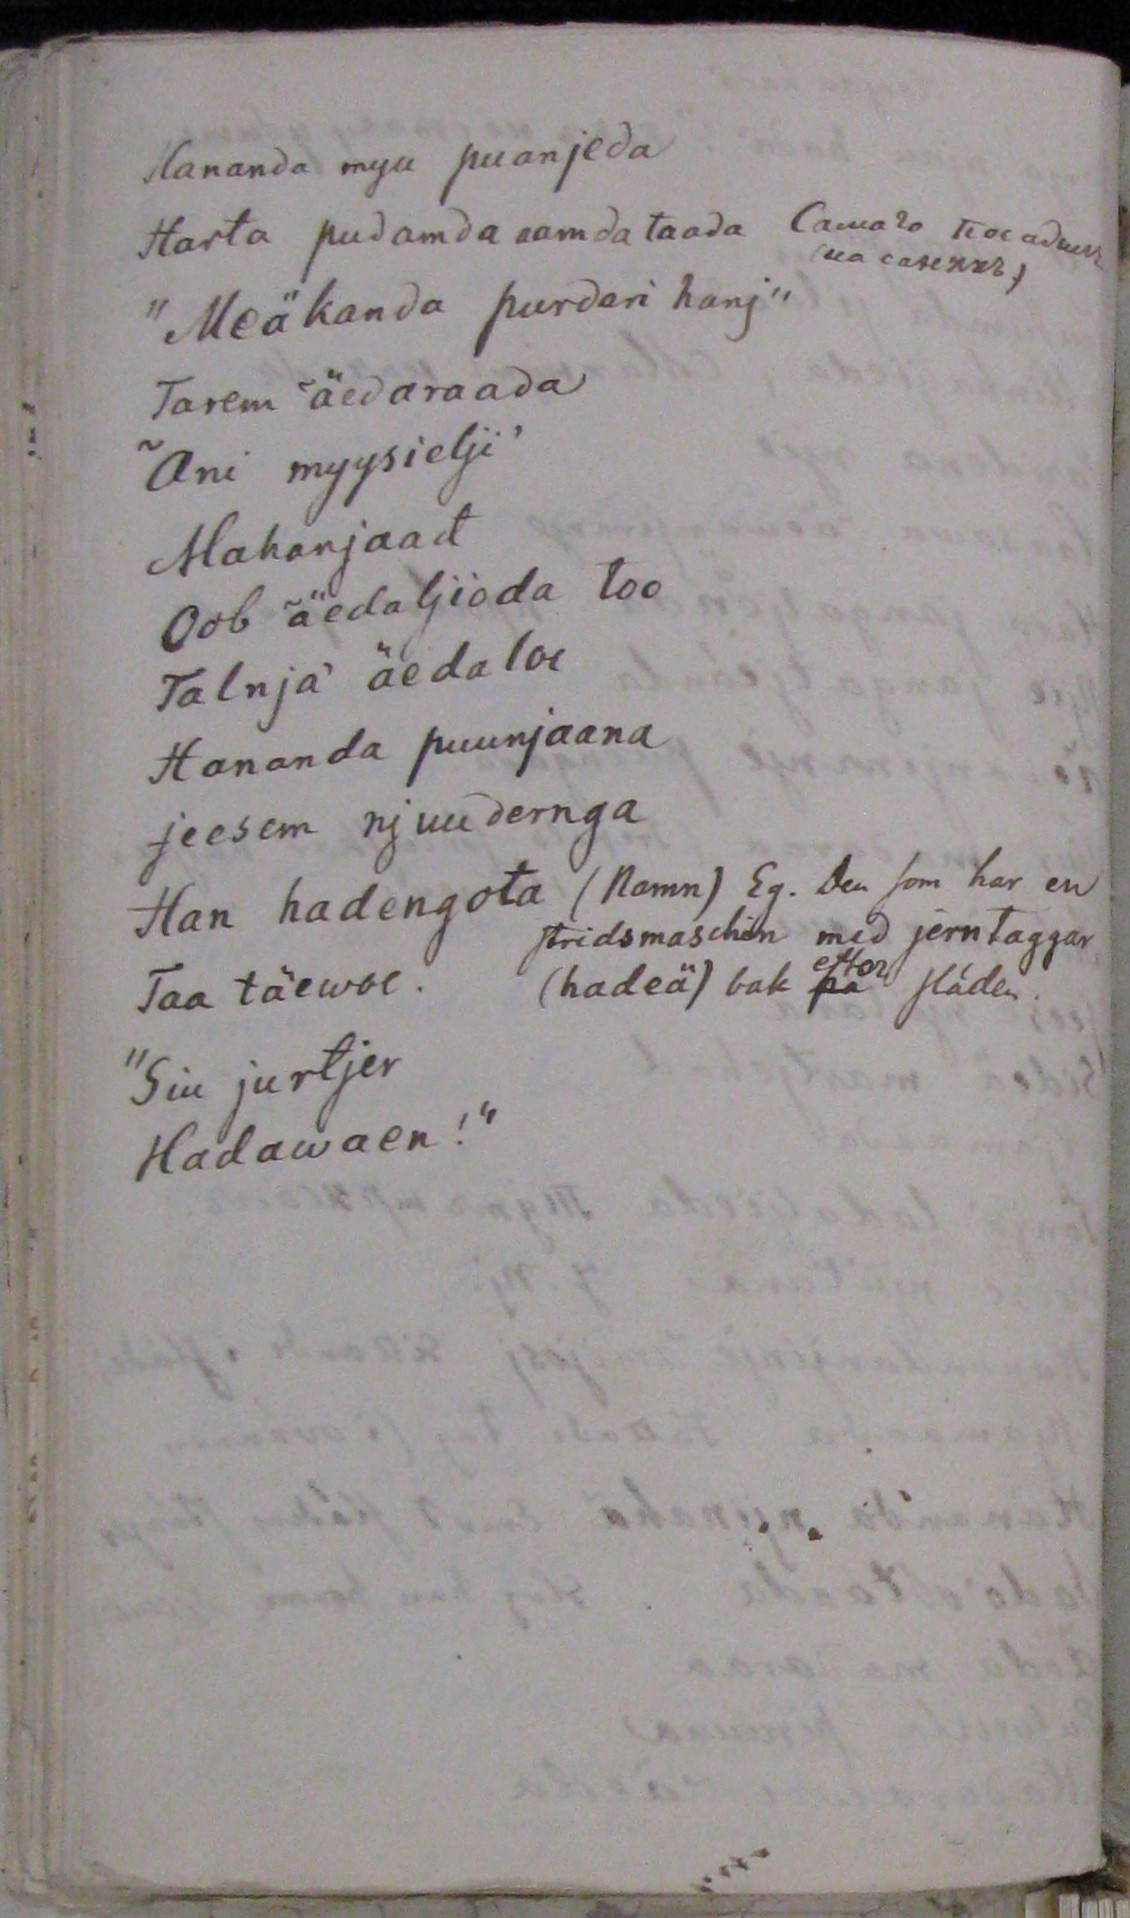 Hananda myu puanjeda
Harta pudamda aamda taada Самаго посадилъ
(на саняхъ)
"Meäkanda purdari hanj"
Tarem ˜äedaraada
˜Ani myysielji'
Mahanjaad
Oob ˜äedaljioda too
Talnja' äedaloe
Hananda puunjaana
jeesem njuudernga
Han hadengota (Namn) Eg. Den som har en
stridsmaschin med jerntaggar
Taa täewoe. (hadeä) bak efter släden.
"Siu jurtjer
Hadawaen!"